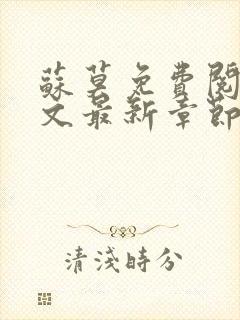 蘇莫免費閱
文最新章節
清淺時分